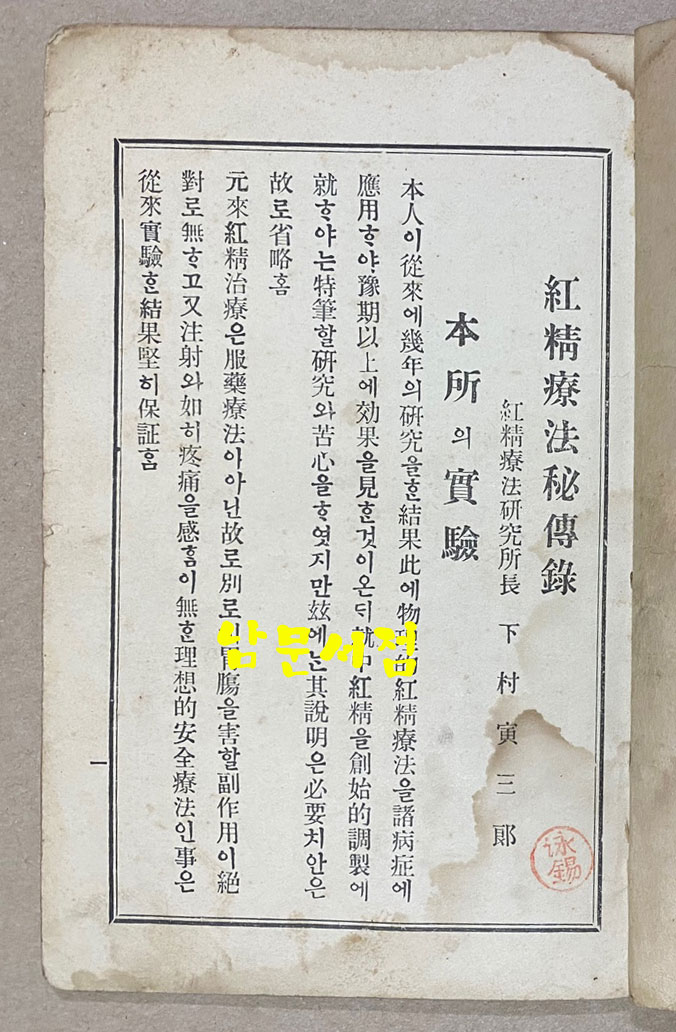 紅精療法秘傳錄
紅精療法硏究所長 下村寅三郞
本所의實驗
本人이從來에幾年의硏究을ᄒᆞᆫ結果此에物理的紅精療法을諸病症에
應用ᄒᆞ야豫期以上에効果을見ᄒᆞᆫ것이온ᄃᆡ就中紅精을創始的調製에
就ᄒᆞ야는特筆할硏究와苦心을ᄒᆞ엿지만玆에는其說明은必要치안은
故로省略홈
元來紅精治療은服藥療法아아닌故로別로胃膓을害할副作用이絕
對로無ᄒᆞ고又注射와如히疼痛을感ᄒᆞᆷ이無ᄒᆞᆫ理想的安全療法인事은
從來實驗ᄒᆞᆫ結果堅히保証홈
一
泳錫
남문서점